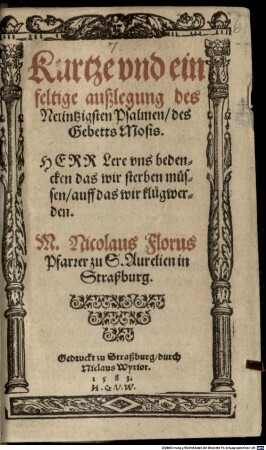 7.
Kurtze vnd ein
feltige außlegung des
Neüntzigsten Psalmen/des
Gebetts Mosis.
HERR Lere vns beden-
cken das wir sterben müs-
sen/auff das wir klůg wer-
den.
M. Nicolaus Florus
Pfarrer zu S. Aurelien in
Straßburg.
Gedruckt zu Straßburg/durch
Niclaus Wyriot.
1583.
H. G. V. W.